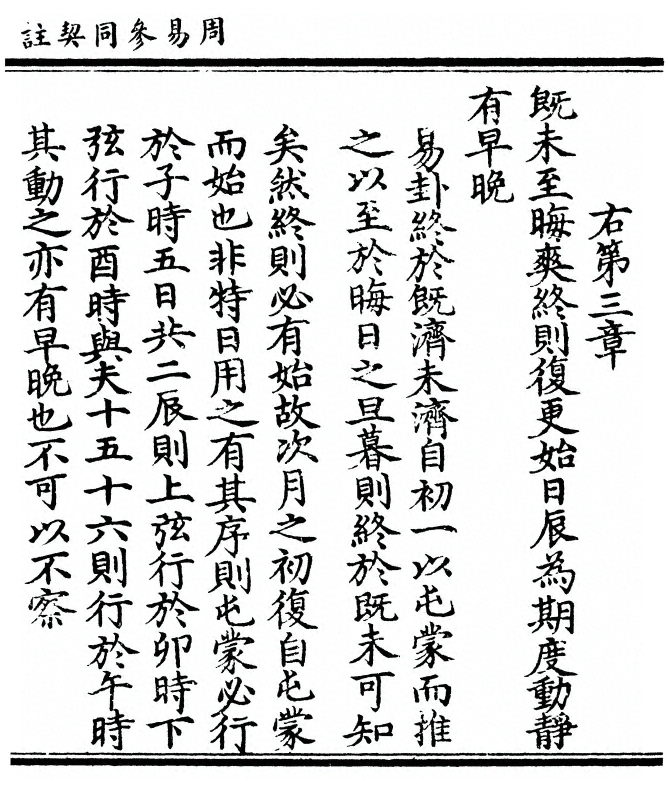 周易參同契註
右第三章
既未至晦爽終則復更始日辰為期度動靜
有早晚
易卦終於既濟未濟自初一以屯蒙而推
之以至於晦日之旦暮則終於既未可知
矣然終則必有始故次月之初復自屯蒙
而始也非特日用之有其序則屯蒙必行
於子時五日共二辰則上弦行於卯時下
弦行於酉時與夫十五十六則行於午時
其動之亦有早晚也不可以不察